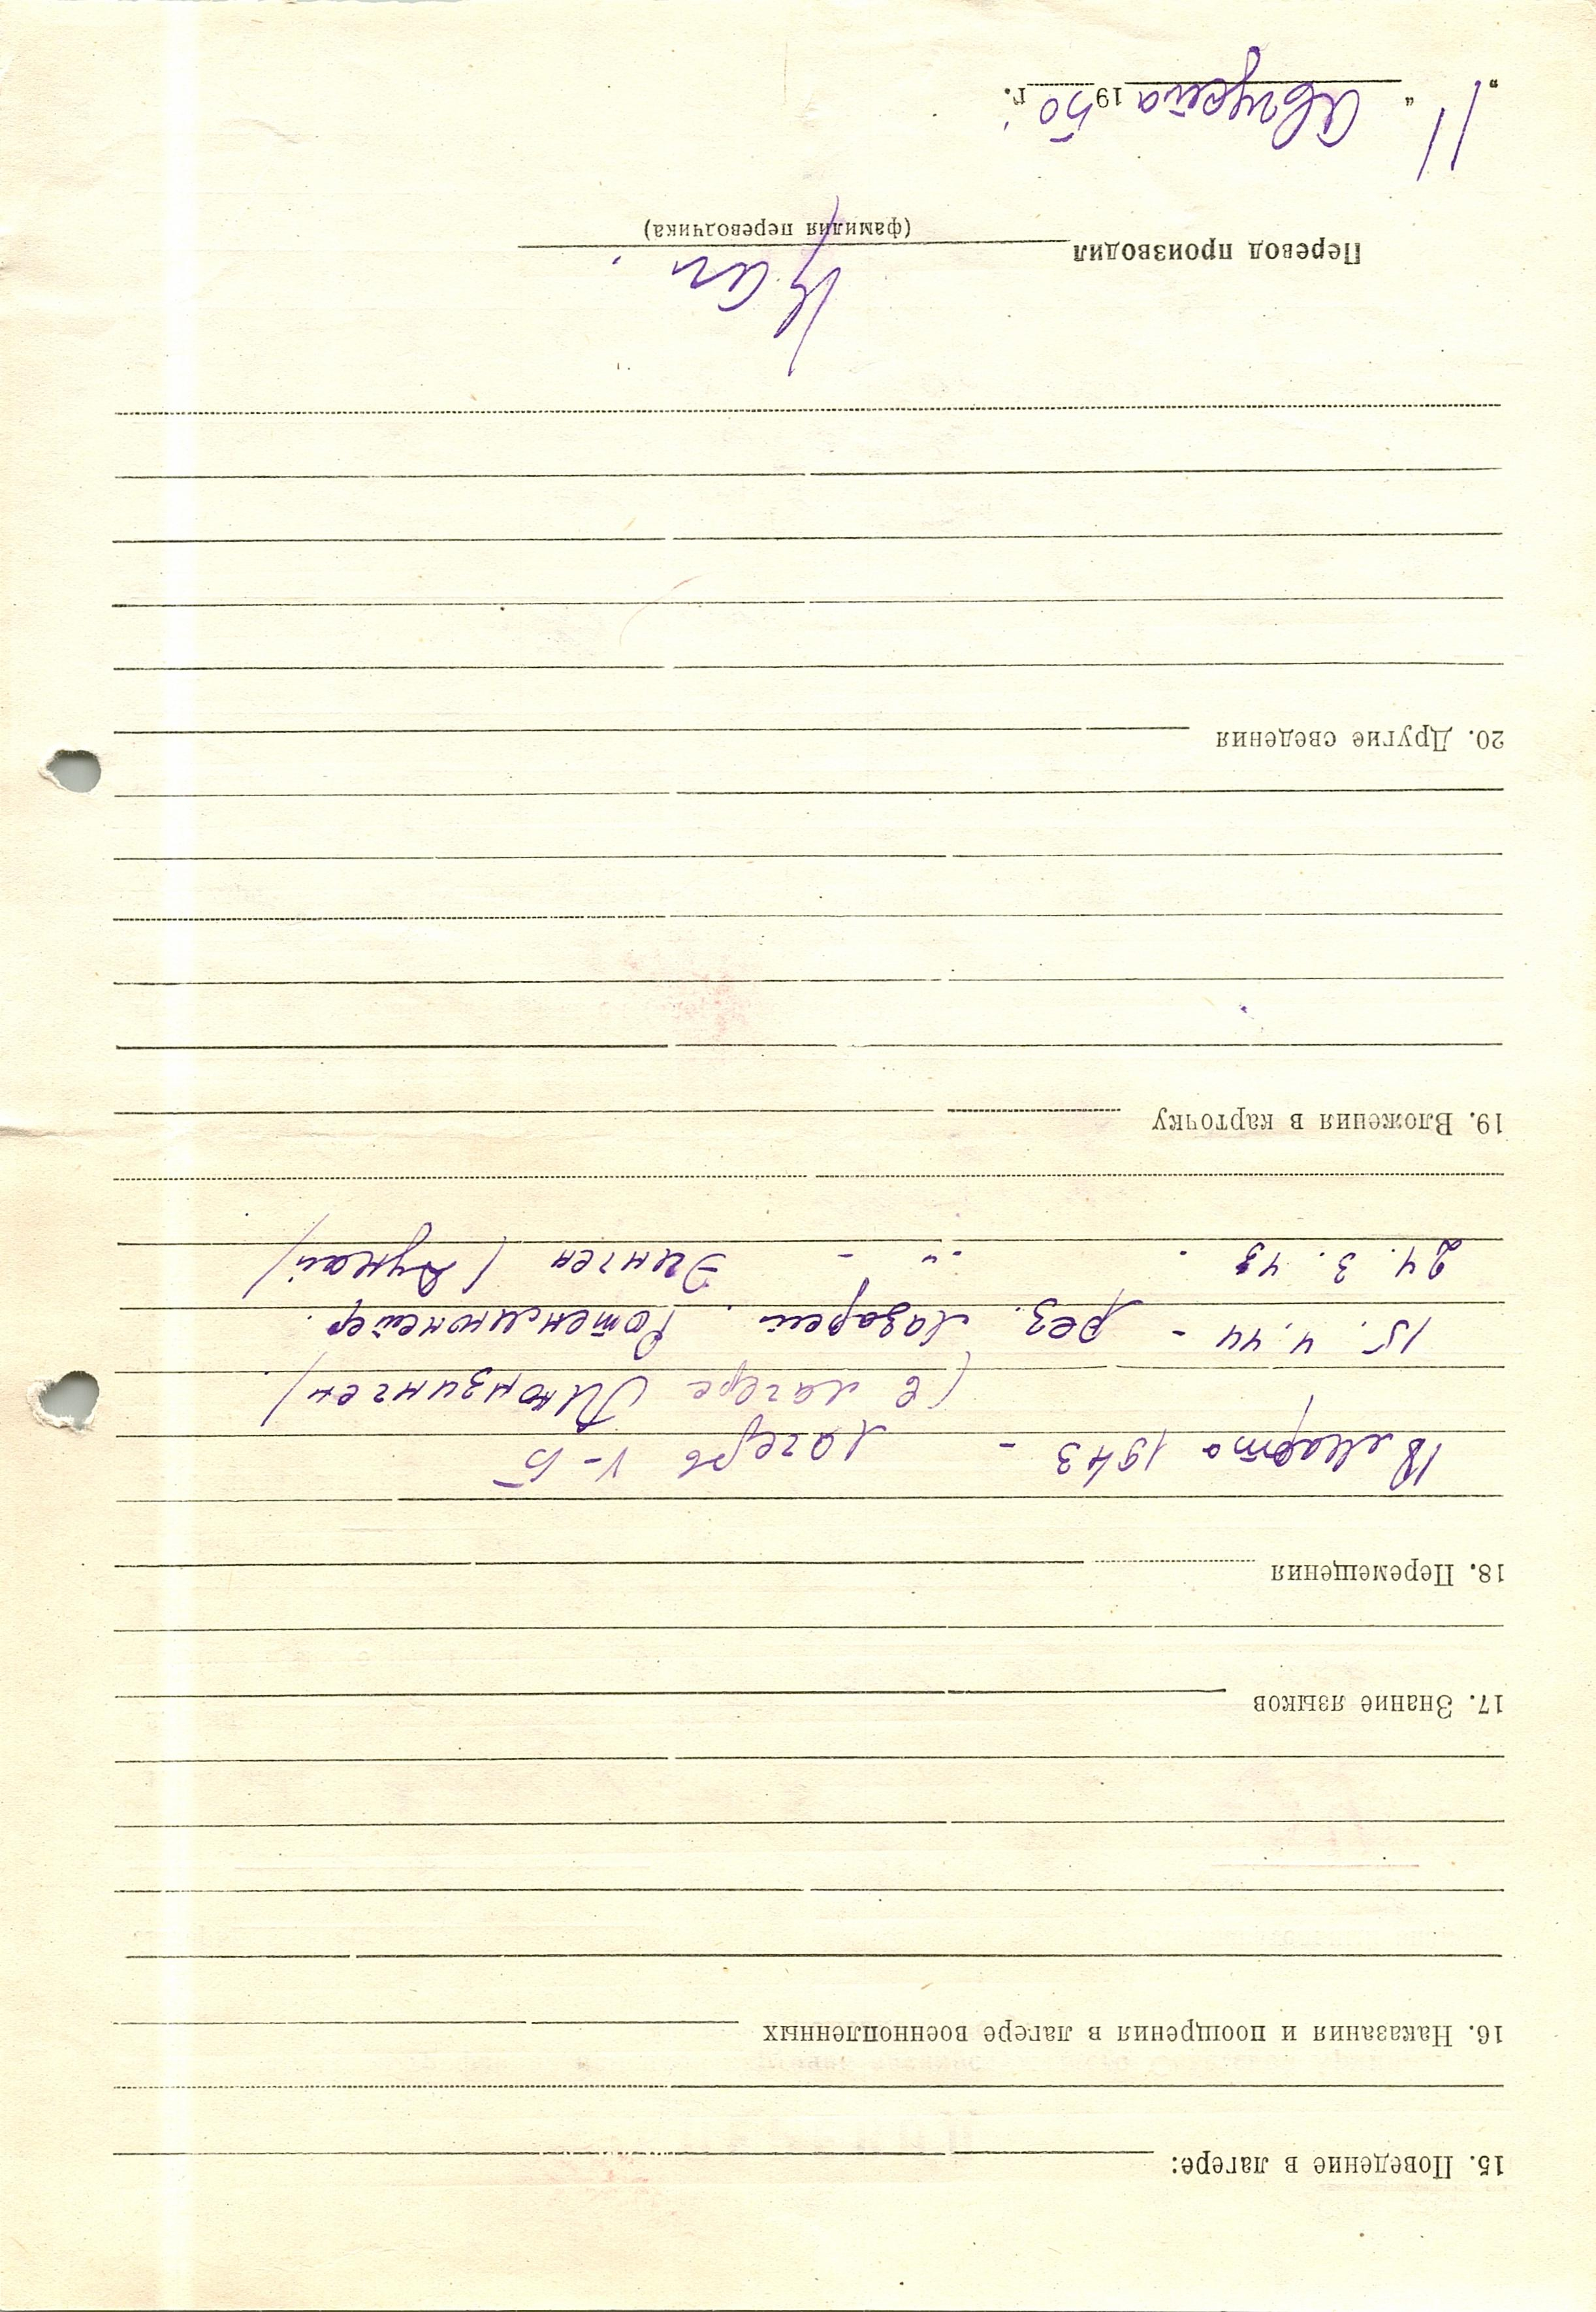 15. Поведение в лагере:
16. Наказания и поощрения в лагере военнопленных
17. Знание языков
18. Перемещения
18 марта 1943 - лагерь V-Б
(в лагере Линдзинген)
15. 4. 44 - рез. лазарет. Ротенмюнстер.
24. 3. 43 - " - Эинген (Дунай)
19. Вложения в карточку
20. Другие сведения
Перевод производил
(фамилия переводчика)
„11“ Августа 1950 г.